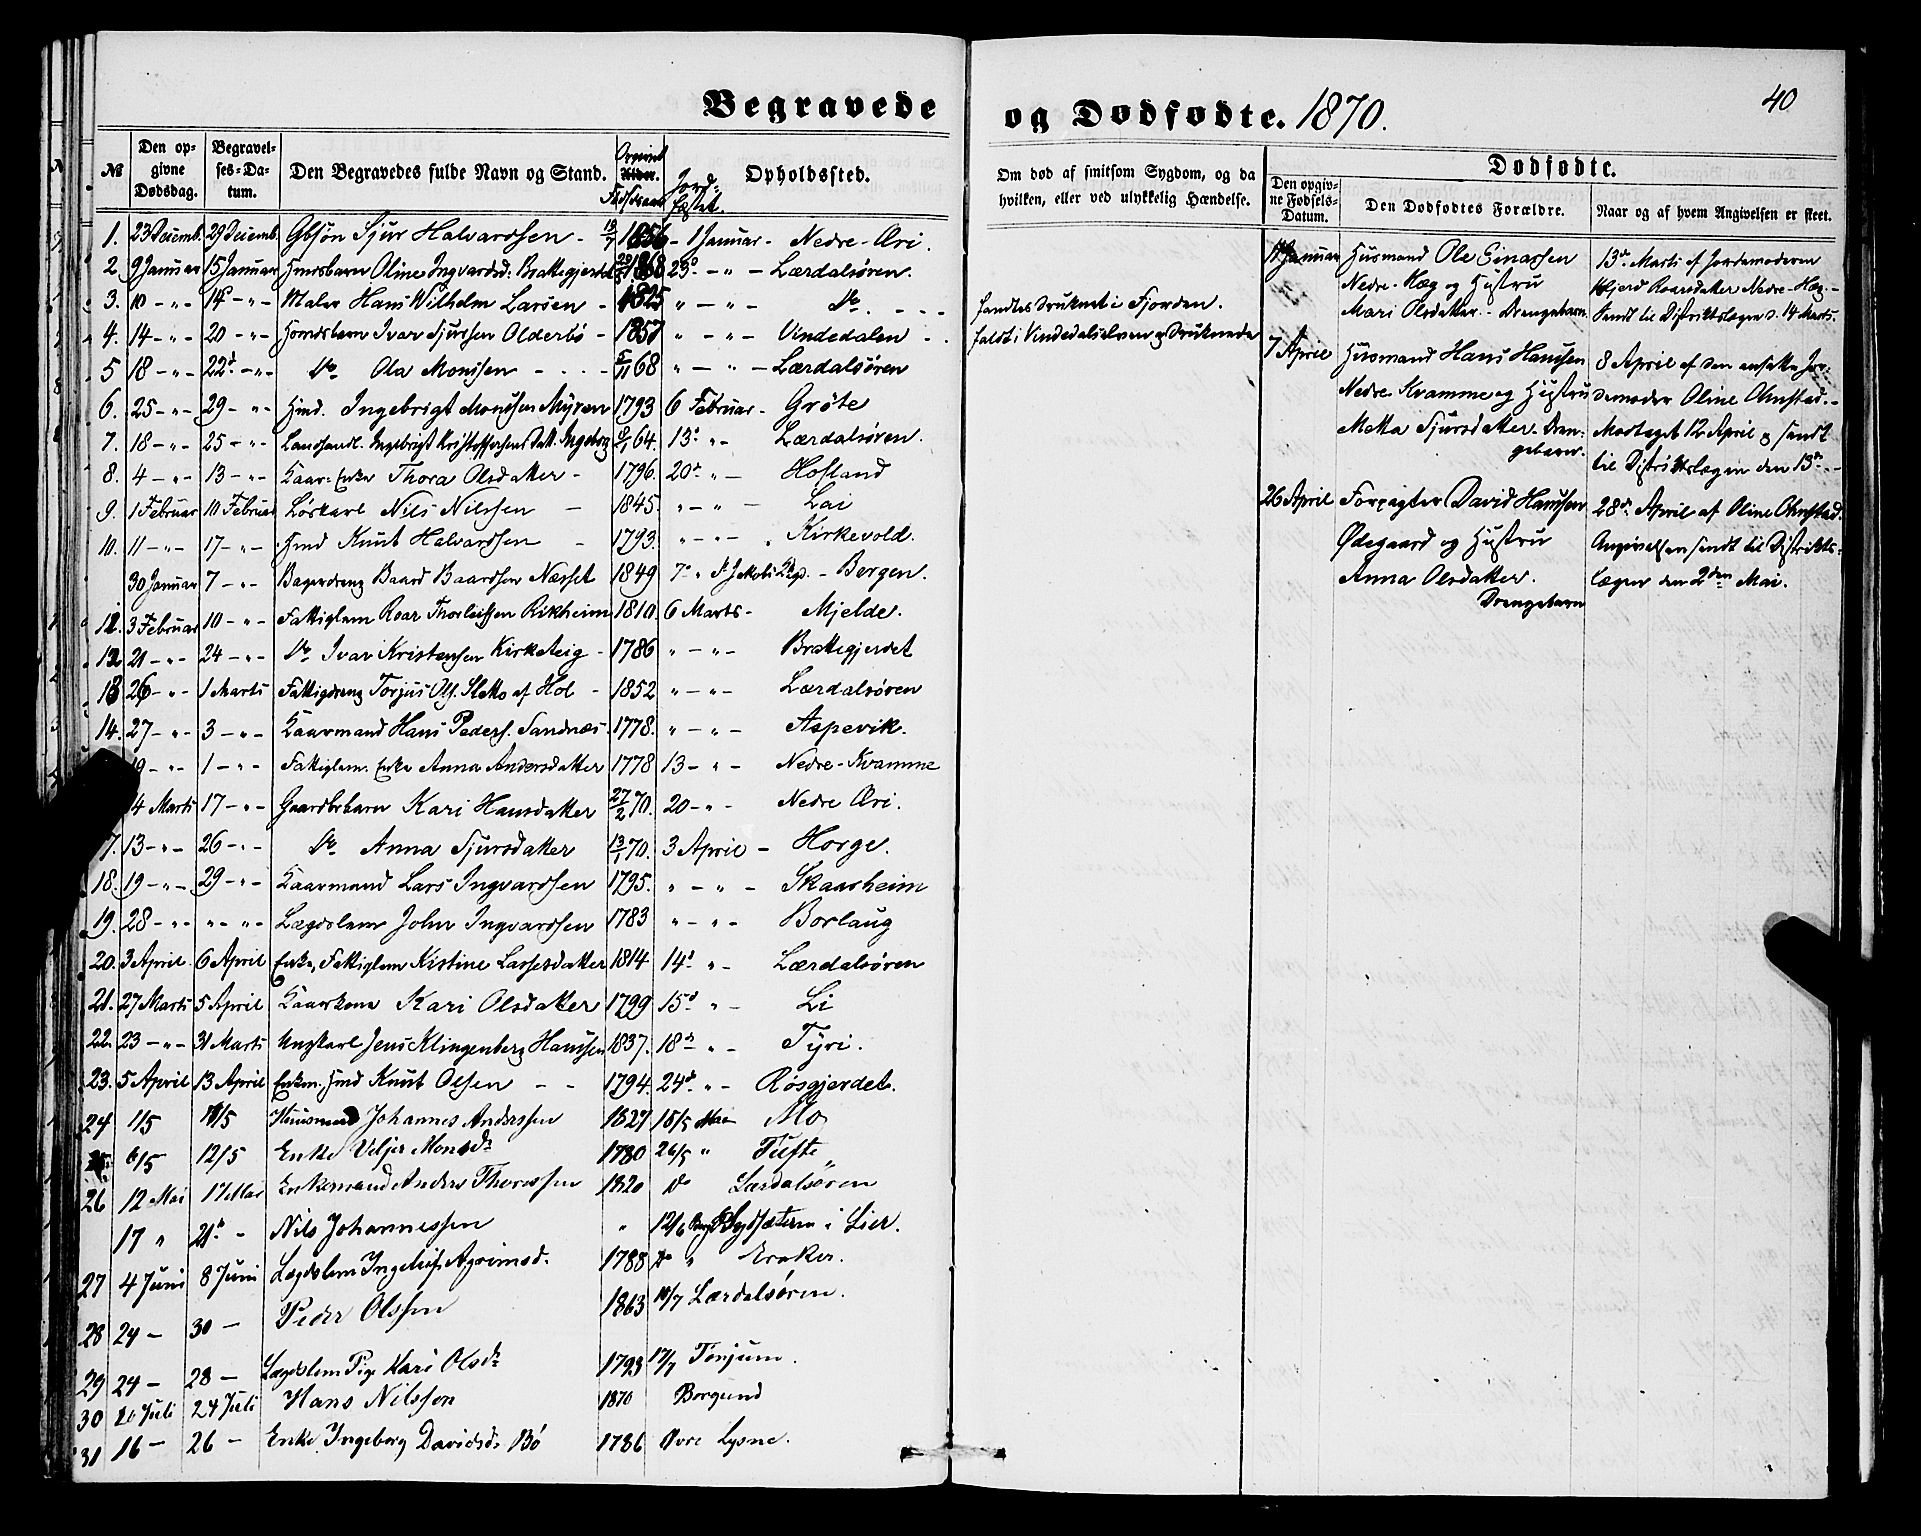 Begravede og Dødfødte. 1870.
40
№ Den opgivne Dødsdag. Begravelses-Datum. Den Begravedes fulde Navn og Stand. Alder. Fødselsaar Jordfæstet. Opholdssted.
Om død af smitsom Sygdom, og da hvilken, eller ved ulykkelig Hændelse.
Dødfødte.
Den opgivne Fødsels-Datum. Den Dødfødtes Forældre. Naar og af hvem Angivelsen er skeet.
1. 23 Decemb. 29 Decemb. Gbsøn Sjur Halvardsen - 13/7 1856 - 1 Januar - Nedre-Øri.
2. 9 Januar 15 Januar Hmdsbarn Oline Ingvardsd: Brattegjerdet 1868 23d - " - Lærdalsøren.
3. 10 - " - 14d - " - Maler Hans Wilhelm Larsen - 1825 " - " - Do. - - -
4. 14 - " - 20 - " - Ivar Sjursen Olderbø - 1857 " - " - Vindedalen - -
5 18 - " - 22d - " - Do Ola Monssen - - - 5/11 68 " - " - Lærdalsøren
6. 25 - " - 29 - " - Hmd. Ingebrigt Monssen Myren 1793 6 Februar - Grøte
7. 18 - " - 25 - " - Landhandl. Ingebrigt Kristoffersens Datt. Ingeborg 64. 13d " - Lærdalsøren.
8. 4 - " - 13 - " - Kaar-Enke Thora Olsdatter - 1796. 20d " - Hofland
9. 1 Februar 10 Februar Løskarl Nils Nilssen - 1845. " - " - Lai
10. 11 - " - 17 - " - Hmd Knut Halvardsen - 1793. " - " - Kirkevold.
30 Januar 7 - " - Bagerdreng Baard Baardsen Næsset 1849 7d " St Jakobs Kgd. - Bergen.
11. 3 Februar 10 - " - Fattiglem Roar Thorleifsen Rikheim 1810. 6 Marts - Mjelde.
12 21 - " - 24 - " - Do Ivar Kristensen Kirketeig - 1786 " - " - Brattegjerdet
13 26 - " - 1 Marts Fattigdreng Torjus Ols. Sletto af Hol - 1852 " - " - Lærdalsøren
14. 27 - " - 3 - " - Kaarmand Hans Peders. Sandnæs - 1778. " - " - Aspevik.
19 - " - 1 - " - Fattiglem. Enke Anna Andersdatter 1778 13 - " - Nedre-Kvamme
4 Marts 17 - " - Gaardbrbarn Kari Hansdatter 27/2 70. 20 - " - Nedre Øri.
7. 13 - " - 26 - " - Do Anna Sjursdatter 13/1 70. 3 April - Horge.
18. 19 - " - 29 - " - Kaarmand Lars Ingvardsen 1795. " - " - Skaarheim
19. 28 - " - " - " - Lægdslem John Ingvardsen 1783 " - " - Borlaug
20. 3 April 6 April Enke, Fattiglem Kistine Lassesdatter 1814 14d " - Lærdalsøren
21. 27 Marts 5 April Kaarkone Kari Olsdatter 1799 15d " - Li
22. 23 - " - 31 Marts Ungkarl Jens Klingenberg Hanssen 1837. 18d " - Tyri.
23. 5 April 13 April Enkem. Hmd Knut Olsen - - 1794. 24d " - Røsgjerdet.
24 1/5 11/5 Huusmand Johannes Anderssen 1827 15/5 Mai Mo
25. 6/5 12/5 Enke Veljer Monsdr 1780 26/5 " Tufte
26 12 Mai 17 Mai Enkemand Anders Thoressen 1820 Do Lærdalsøren
17 " 21d - Nils Johannessen " 12/6 Sydsæteren i Lier.
27 4 Juni 8 Juni Lægdslem Ingeleif Agrimsd. 1788 Do " Eraker.
28 24 - 30 - Peder Olssen 1863 10/7 Lærdalsøren.
29 24 - 28 - Lægdslem Pige Kari Olsdr 1793 17/7 Tønjum.
30 10 Juli 24 Juli Hans Nilsson 1870 Borgund
31 16 - 26 - Enke Ingeborg Davidsd. Bø 1786 Øvre Lysne.
fandtes Druknet i Fjorden.
faldt i Vindedalselven og Druknede
17 Januar Husmand Ole Einarssen
Nedre-Hæg og Hustru
Mari Olsdatter. - Drengebarn.
13de Marts af Jordemoderen
Roarsdatter Nedre-Hæg. -
Sendt til Distriktslægen d. 14 Marts.
7 April Husmand Hans Hanssen
Nedre Kvamme og Hustru
Metta Sjursdatter. Drengebarn.
8 April af den ansatte Jordemoder Oline Ohnstad. -
Modtaget 12 April og sendt
til Distriktslægen den 13de -
26 April Forpagter David Hanssen
Ødegaard og Hustru
Anna Olsdatter.
Drengebarn
28de April af Oline Ohnstad.
Angivelsen sendt til Distriktslægen den 2den Mai.